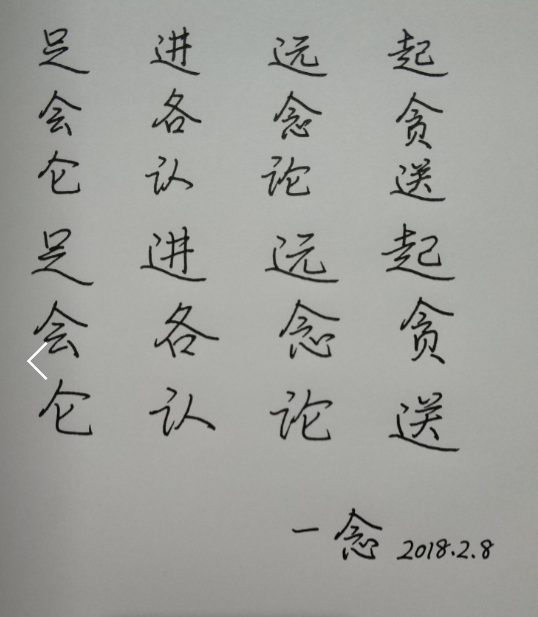 足 进 远 起
会 各 念 贪
仑 认 论 送
足 进 远 起
会 各 念 贪
仑 认 论 送
一念 2018.2.8